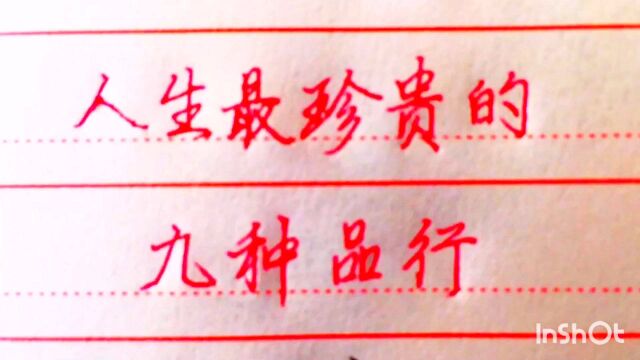 人生最珍贵的
九种品行
InShOt